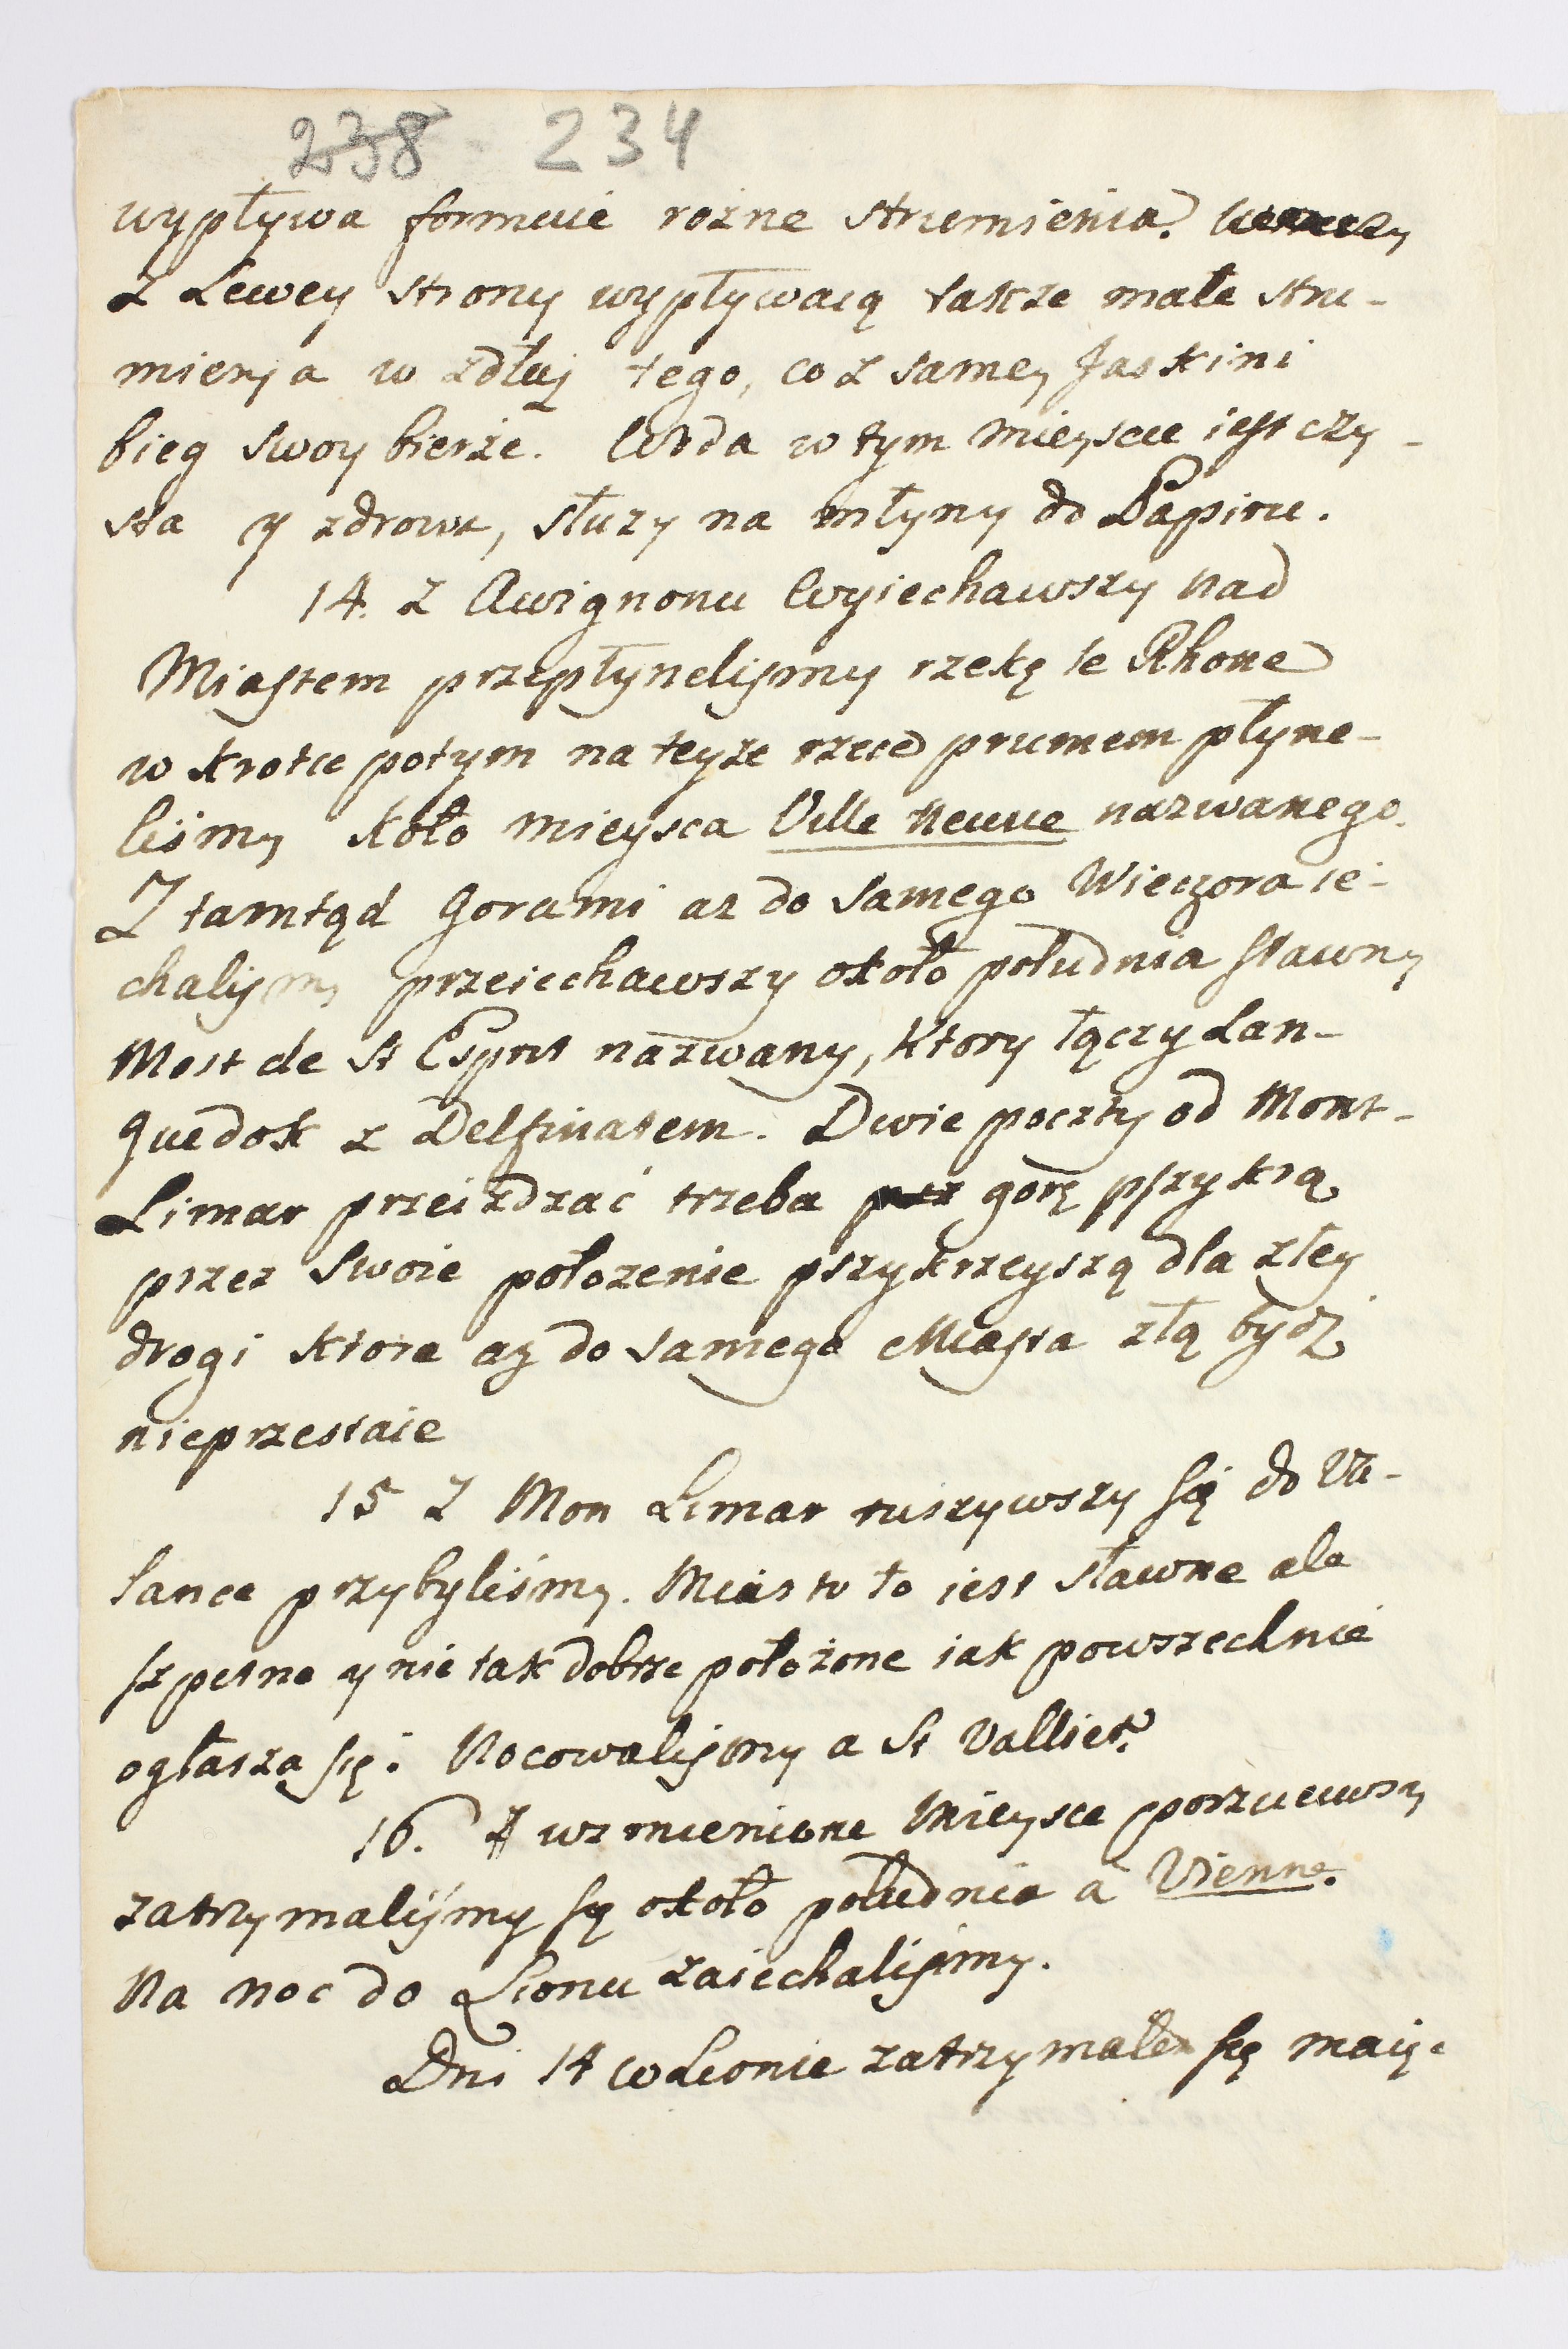 238 234
wypływa formuie rożne strumienia.
z Lewey strony wypływaią także małe stru-
mienja w zdłuj tego, co z samey Jaskini
bieg swoy bierże. Woda w tym mieyscu iest czy-
sta y zdrowa, służy na młyny do Papiru.
14. Z Awignonu Wyiechawszy nad
Miastem przepłynelismy rzekę le Rhone
w krotce potym na teyże rzece prumem płyne-
liśmy koło mieysca Ville neuve nazwanego.
Z tamtąd Gorami az do samego Wieczora ie-
chalismy przeiechawszy około południa sławny
Most de St Esprit nazwany, Ktory łączy Lan-
guedok z Delfinatem. Dwie poczty od Mont-
Limar przeiżdzać trzeba gorę pszykrą
przez swoie położenie pszykrzeyszą dla złey
drogi ktora az do samego Miasta złą bydź
nieprzestaie
15 Z Mon Limar ruszywszy się do Va-
lance przybyliśmy. Miasto to iest sławne ale
szpetne y nie tak dobrze położone iak powszechnie
ogłasza się. Nocowalismy a St Vallier.
16. wzmienione Mieysce porzuciwszy
zatrzymaliśmy się około południa a Vienne.
Na noc do Lionu zaiechalismy.
Dni 14 w Lionie zatrzymałem się maią-